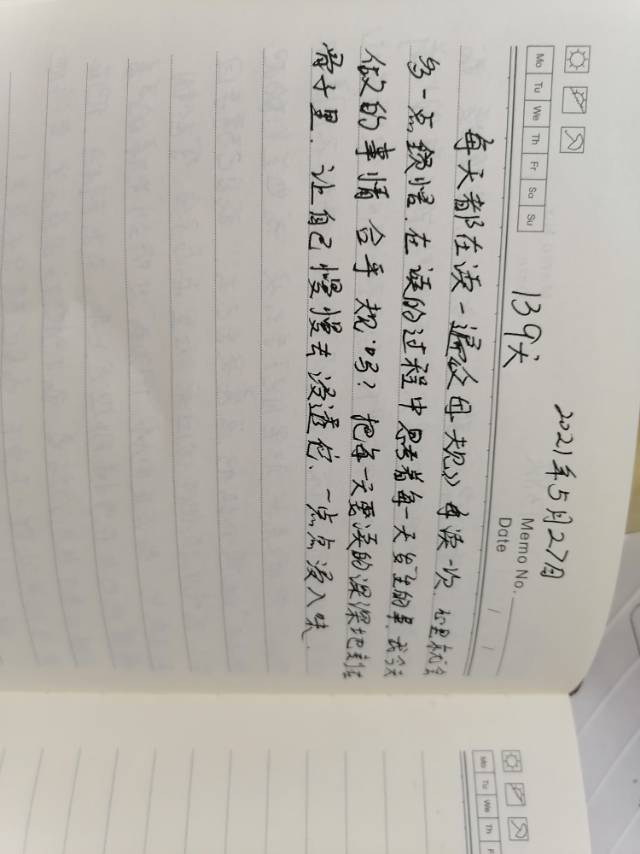 2021年5月27日
Memo No.
Date / /
139天
Mo Tu We Th Fr Sa Su
每天都在读一遍《母规》每读一次,
多一点领悟.在读的过程中思考着每一天发生的事,我今天
做的事情合乎规吗?把每一天要读的深深地刻在
骨子里.让自己慢慢去浸透它、一点点浸入味.
Mo Tu We Th F